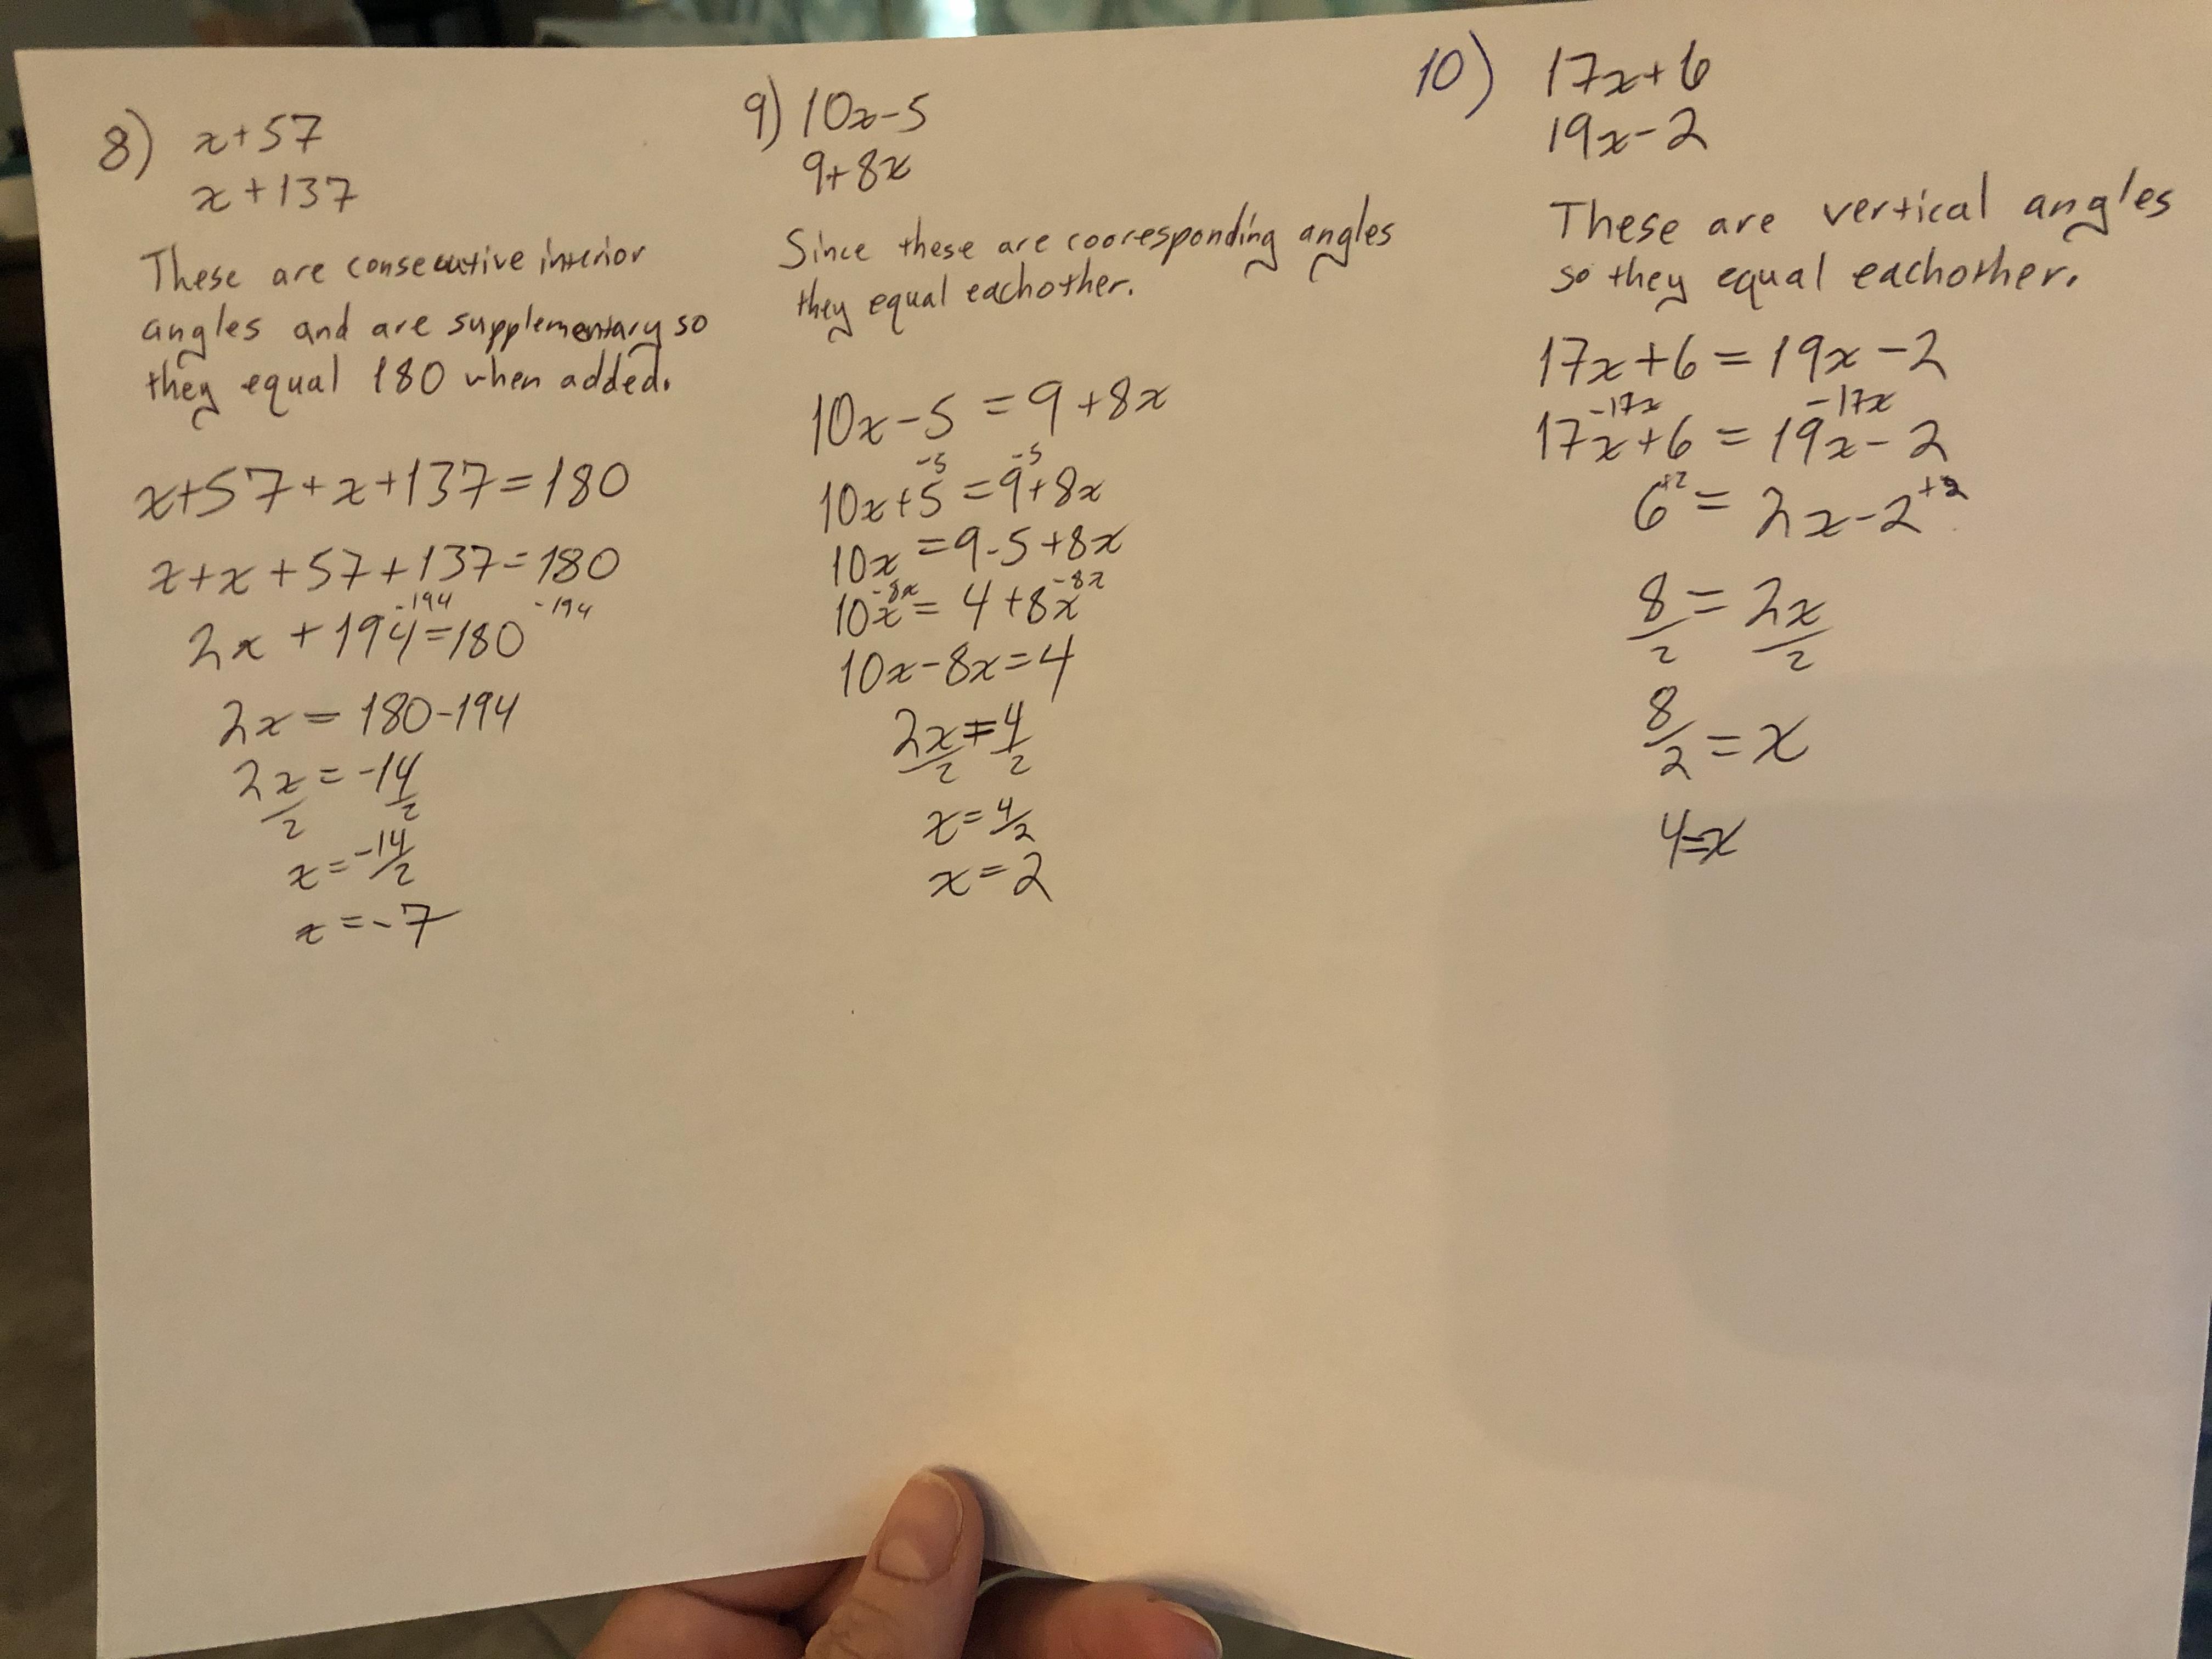 8) x+57
x+137
These are consecutive interior
angles and are supplementary so
they equal 180 when added.
x+57+x+137=180
x+x+57+137=180
-194 -194
2x+194=180
2x=180-194
2x/2=-14/2
x=-14/2
x=-7
9) 10x-5
9+8x
Since these are cooresponding angles
they equal eachother.
10x-5=9+8x
-5 -5
10x+5=9+8x
10x=9-5+8x
-8x -8x
10x=4+8x
10x-8x=4
2x/2=4/2
x=4/2
x=2
10) 17x+6
19x-2
These are vertical angles
so they equal eachother.
17x+6=19x-2
-17x -17x
17x+6=19x-2
6+2=2x-2+2
8/2=2x/2
8/2=x
4=x